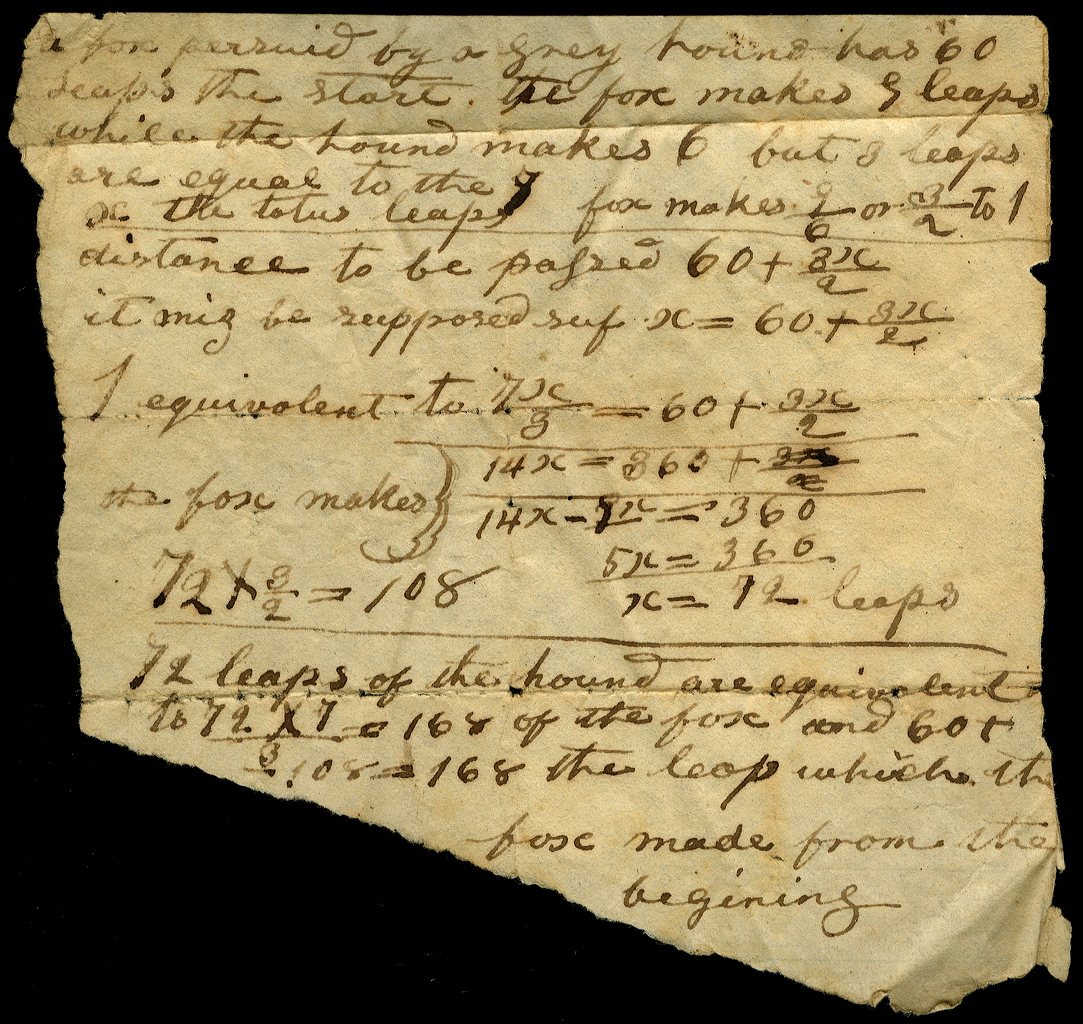 a fox persuid by a grey hound has 60
leaps the start. the fox makes 9 leaps
while the hound makes 6 but 3 leaps
are equal to the 7
x the totus leaps fox makes 9/6 or 3/2 to 1
distance to be passed 60 + 3x/2
it mig be supposed suf x = 60 + 3x/2
1 equivolent to 7x/3 = 60 + 3x/2
14x = 360 +
the fox makes } 14x - 9x = 360
5x = 360
72 X 3/2 = 108 x = 72 leaps
72 leaps of the hound are equivolent
to 72 X 7/3 = 168 of the fox and 60 +
108 = 168 the leap which the
fox made from the
begining